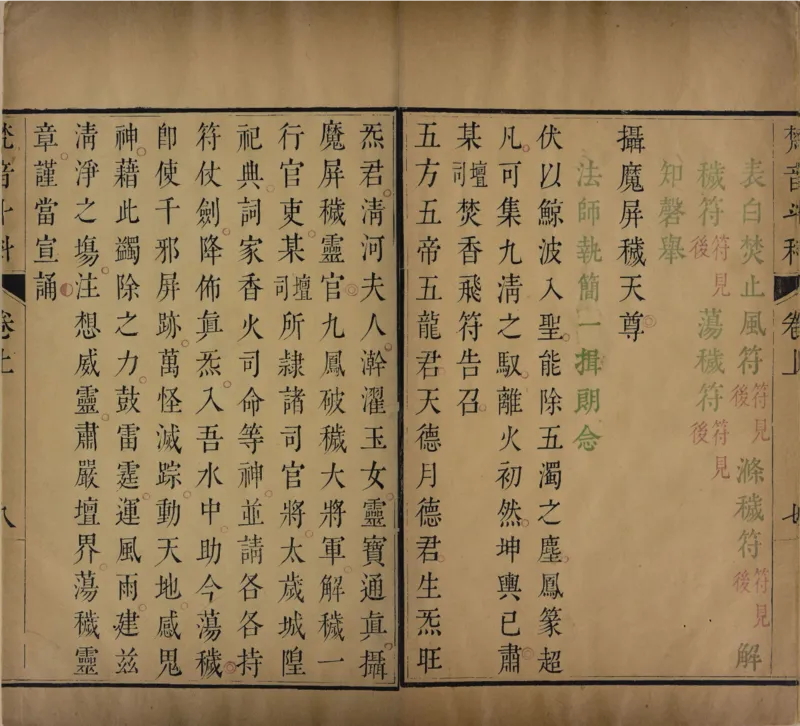 梵音斗科 卷上 七
表白焚止風符符見後滌穢符符見後解
穢符符見後蕩穢符符見後
知磬舉
攝魔屏穢天尊
法師執簡一揖朗念
伏以鯨波入聖能除五濁之塵鳳篆超
凡可集九清之馭離火初然坤輿已肅
某壇司焚香飛符告召
五方五帝五龍君天德月德君生炁旺
炁君清河夫人澣濯玉女靈寶通眞攝
魔屏穢靈官九鳳破穢大將軍解穢一
行官吏某壇司所隸諸司官將太歲城隍
祀典詞家香火司命等神並請各各持
符仗劍降佈眞炁入吾水中助今蕩穢
卽使千邪屏跡萬怪滅踪動天地感鬼
神藉此蠲除之力鼓雷霆運風雨建兹
清淨之塲注想威靈肅嚴壇界蕩穢靈
章謹當宣誦
梵音斗科 卷上 八